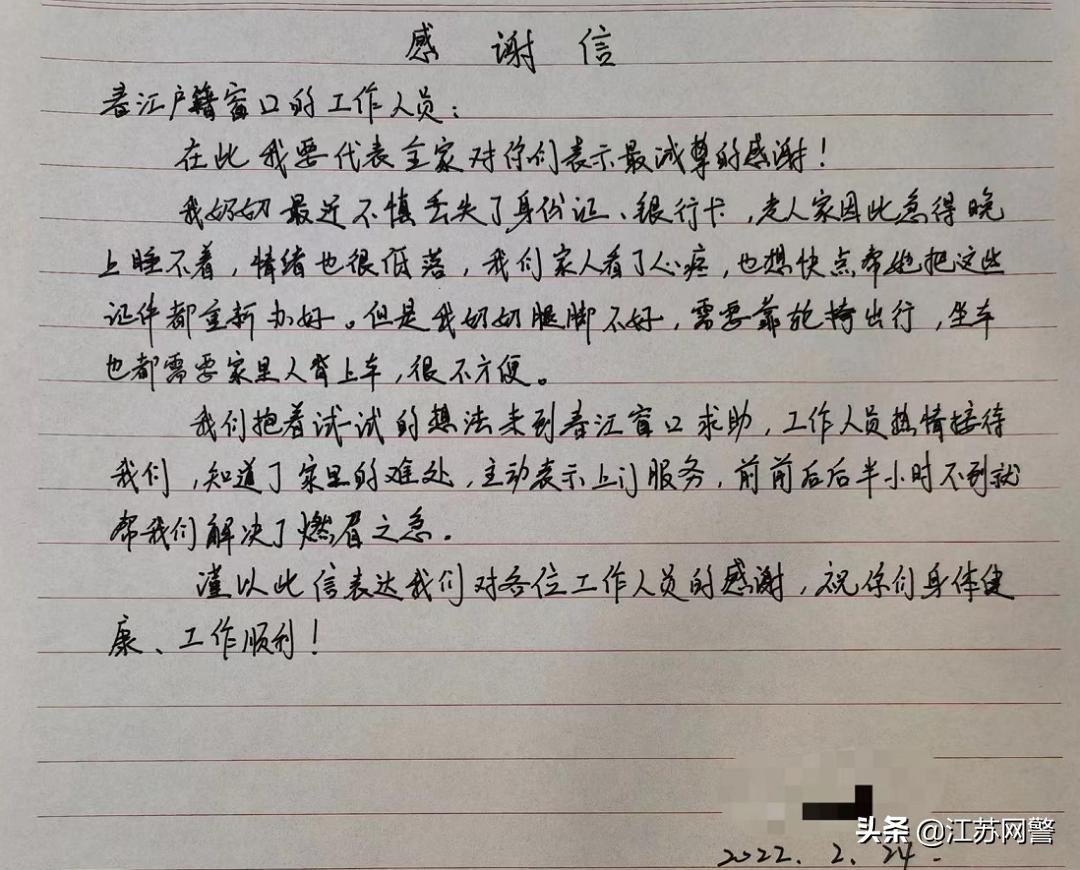 感 谢 信
春江户籍窗口的工作人员：
在此我要代表全家对你们表示最诚尊的感谢！
我奶奶最近不慎丢失了身份证、银行卡，老人家因此急得晚
上睡不着，情绪也很低落，我们家人看了心疼，也想快点帮她把这些
证件都重新办好。但是我奶奶腿脚不好，需要靠轮椅出行，坐车
也都需要家里人背上车，很不方便。
我们抱着试一试的想法来到春江窗口求助，工作人员热情接待
我们，知道了家里的难处，主动表示上门服务，前前后后半小时不到就
帮我们解决了燃眉之急。
谨以此信表达我们对各位工作人员的感谢，祝你们身体健
康、工作顺利！
2022.2.24.
头条 @江苏网警